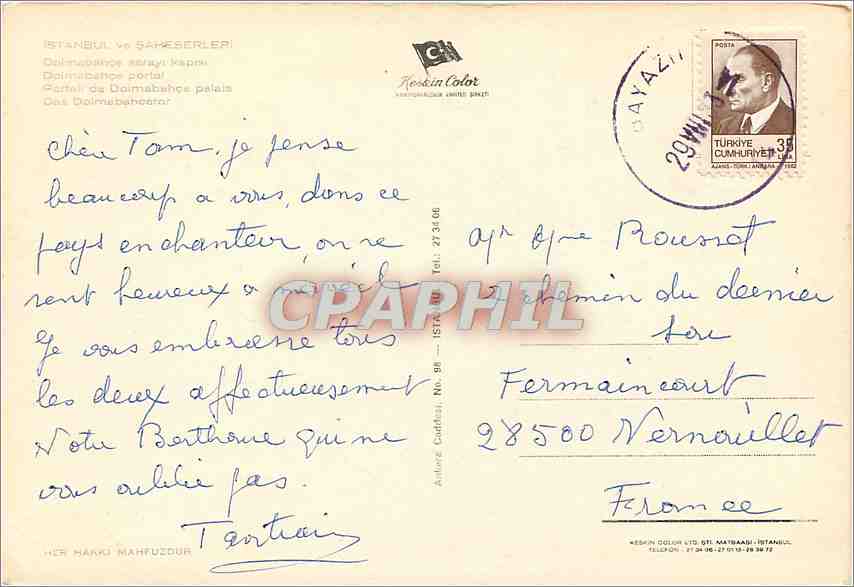 İSTANBUL ve ŞAHESERLERİ
Dolmabahçe sarayı kapısı
Dolmabahçe portal
Portail de Dolmabahçe palais
Das Dolmabahcetor
Keskin Color
BAYAZIT
29 VIII
POSTA
TÜRKİYE
CUMHURİYETİ
35
LİRA
AJANS-TÜRK/ANKARA 1982
chère Tam, je pense
beaucoup a vous, dans ce
pays enchanteur, on se
sent heureux a
Je vous embrasse tous
les deux affectueusement
Notre Berthoue qui ne
vous oublie pas.
CPAPHIL
Ankara Caddesi, No. 98 — İSTANBUL Tel.: 27 34 06
Mr & Mme Roussot
chemin du dernier
sou
Fermaincourt
28500 Vernouillet
France
HER HAKKI MAHFUZDUR
KESKİN COLOR LTD. ŞTİ. MATBAASI - İSTANBUL
TELEFON - 27 34 06 - 27 01 13 - 28 39 72